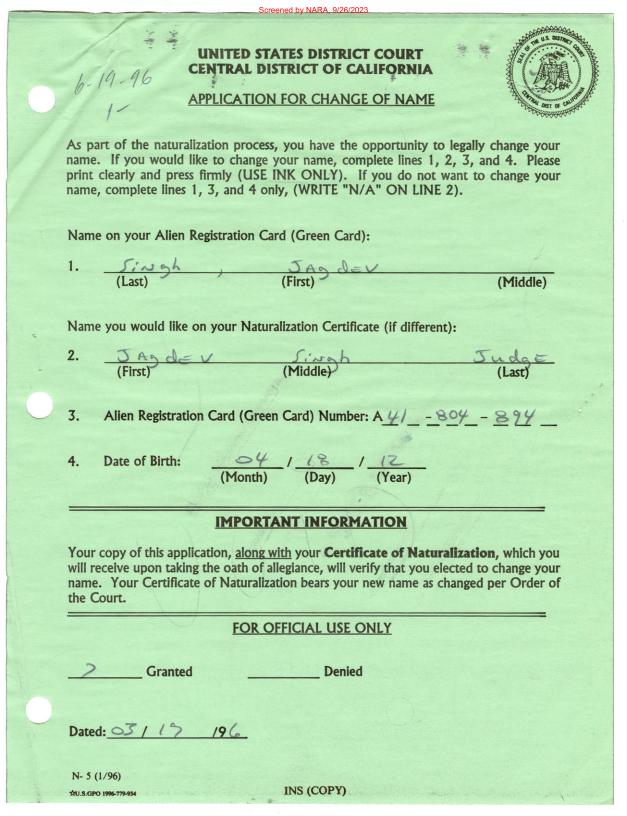 Screened by NARA, 9/26/2023
UNITED STATES DISTRICT COURT
CENTRAL DISTRICT OF CALIFORNIA
SEAL OF THE U.S. DISTRICT COURT
CENTRAL DIST. OF CALIFORNIA
6-19-96
APPLICATION FOR CHANGE OF NAME
As part of the naturalization process, you have the opportunity to legally change your
name. If you would like to change your name, complete lines 1, 2, 3, and 4. Please
print clearly and press firmly (USE INK ONLY). If you do not want to change your
name, complete lines 1, 3, and 4 only, (WRITE "N/A" ON LINE 2).
Name on your Alien Registration Card (Green Card):
1. Singh , JAgdEV
(Last) (First) (Middle)
Name you would like on your Naturalization Certificate (if different):
2. JAgdEV Singh JudgE
(First) (Middle) (Last)
3. Alien Registration Card (Green Card) Number: A 41 - 804 - 894
4. Date of Birth: 04 / 18 / 12
(Month) (Day) (Year)
IMPORTANT INFORMATION
Your copy of this application, along with your Certificate of Naturalization, which you
will receive upon taking the oath of allegiance, will verify that you elected to change your
name. Your Certificate of Naturalization bears your new name as changed per Order of
the Court.
FOR OFFICIAL USE ONLY
Granted Denied
Dated: 03 / 19 /96
N- 5 (1/96)
☆U.S.GPO 1996-779-934
INS (COPY)